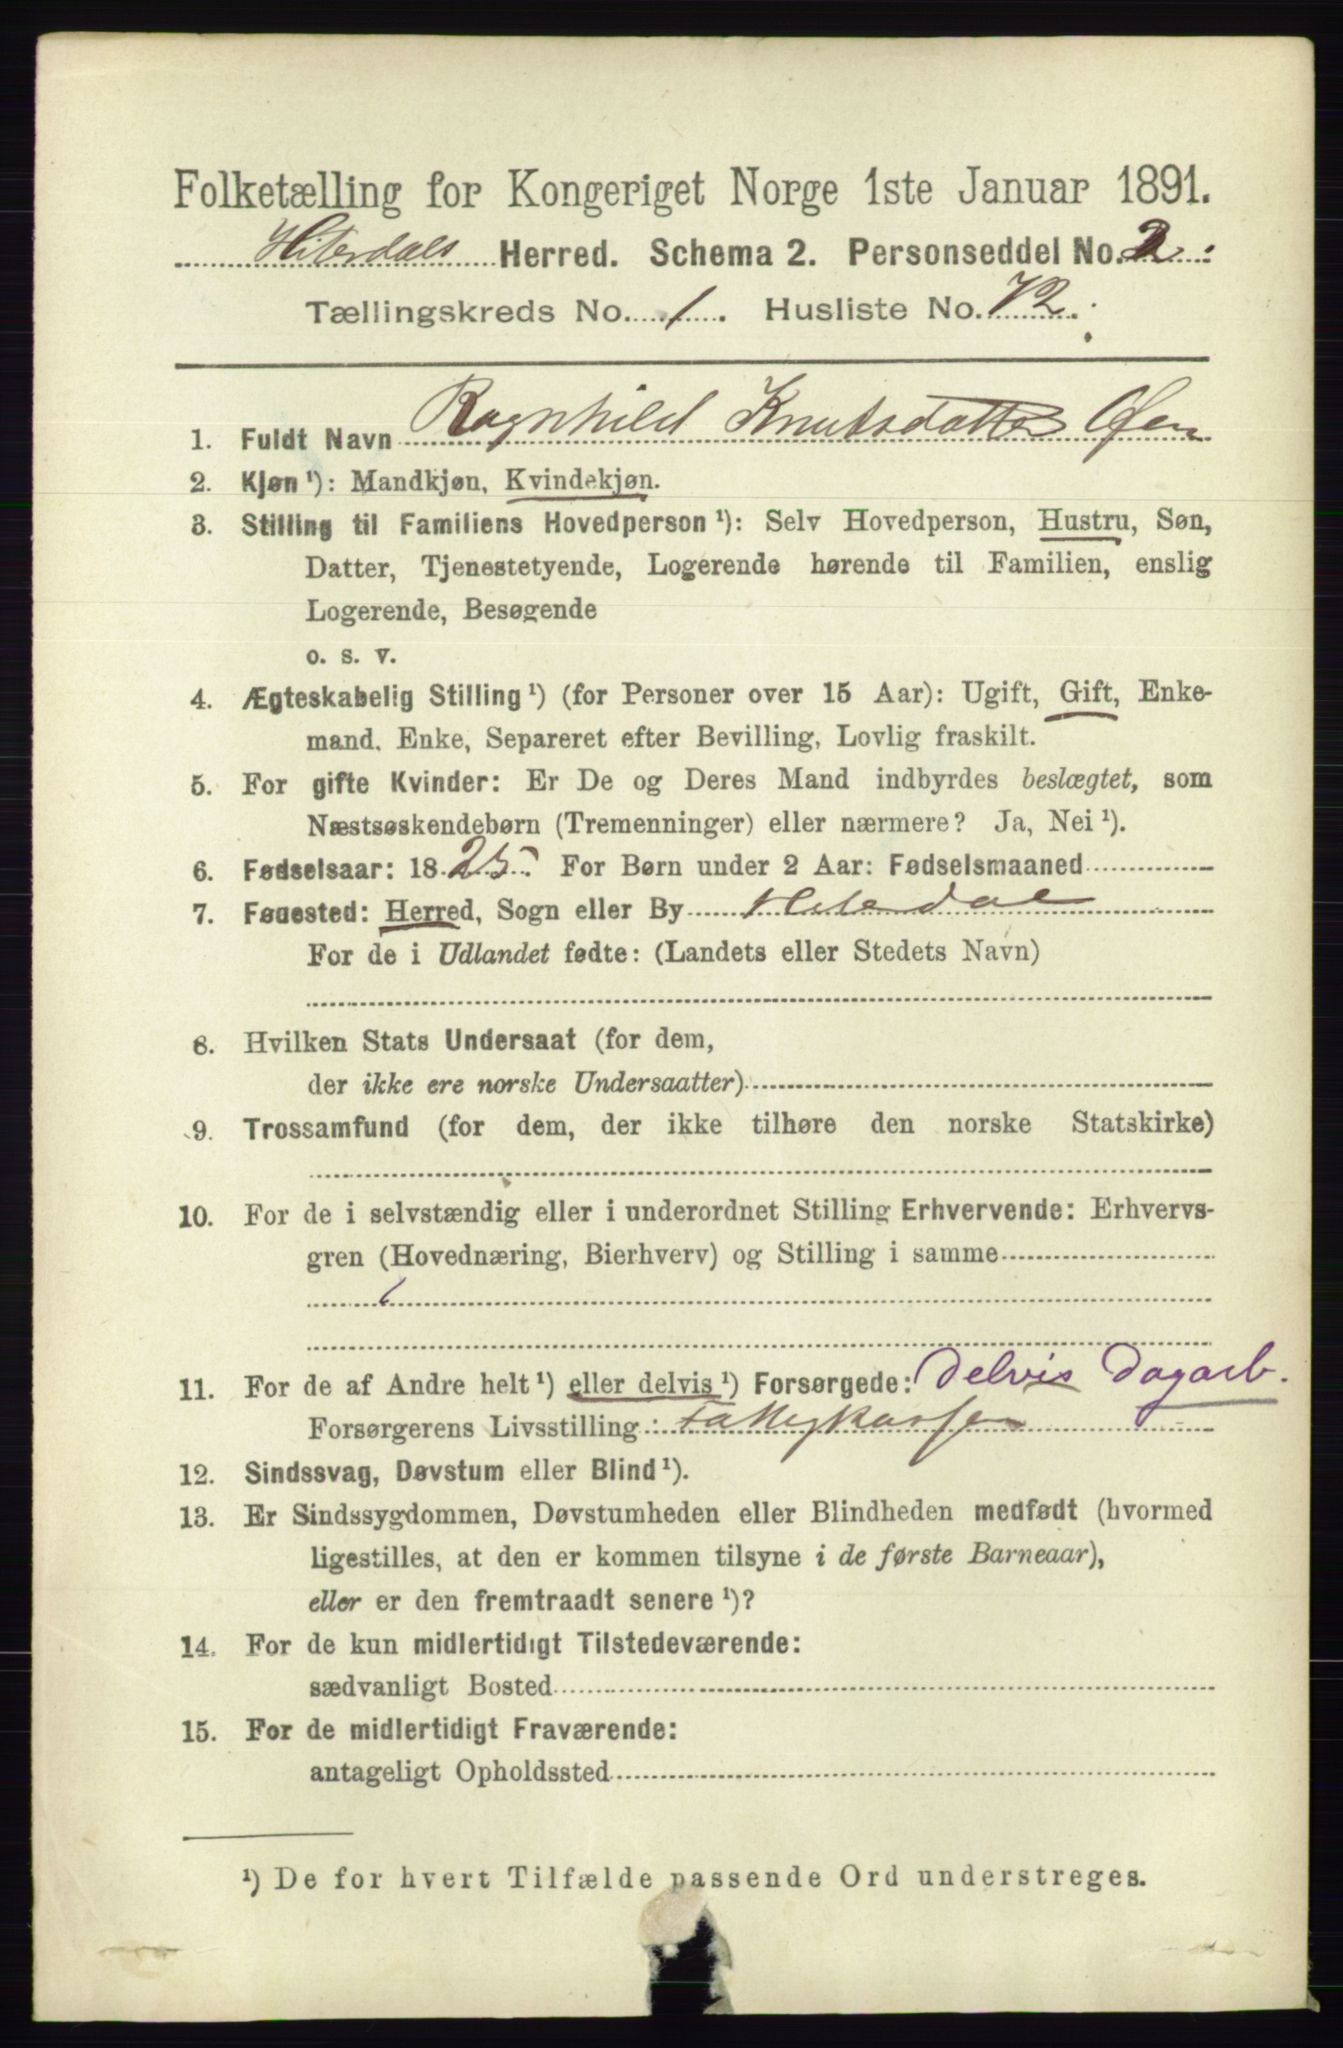 Folketælling for Kongeriget Norge 1ste Januar 1891.
Hiterdals Herred. Schema 2. Personseddel No. 2.
Tællingskreds No. 1. Husliste No. 72.
1. Fuldt Navn Ragnhild Knutsdatter Øen
2. Kjøn ¹): Mandkjøn, Kvindekjøn.
3. Stilling til Familiens Hovedperson ¹): Selv Hovedperson, Hustru, Søn,
Datter, Tjenestetyende, Logerende hørende til Familien, enslig
Logerende, Besøgende
o. s. v.
4. Ægteskabelig Stilling ¹) (for Personer over 15 Aar): Ugift, Gift, Enke-
mand, Enke, Separeret efter Bevilling, Lovlig fraskilt.
5. For gifte Kvinder: Er De og Deres Mand indbyrdes beslægtet, som
Næstsøskendebørn (Tremenninger) eller nærmere? Ja, Nei ¹).
6. Fødselsaar: 1825. For Børn under 2 Aar: Fødselsmaaned
7. Fødested: Herred, Sogn eller By Hiterdal
For de i Udlandet fødte: (Landets eller Stedets Navn)
8. Hvilken Stats Undersaat (for dem,
der ikke ere norske Undersaatter)
9. Trossamfund (for dem, der ikke tilhøre den norske Statskirke)
10. For de i selvstændig eller i underordnet Stilling Erhvervende: Erhvervs-
gren (Hovednæring, Bierhverv) og Stilling i samme
11. For de af Andre helt ¹) eller delvis ¹) Forsørgede: Delvis Dagarb.
Forsørgerens Livsstilling: Fattigkassen
12. Sindssvag, Døvstum eller Blind ¹).
13. Er Sindssygdommen, Døvstumheden eller Blindheden medfødt (hvormed
ligestilles, at den er kommen tilsyne i de første Barneaar),
eller er den fremtraadt senere ¹)?
14. For de kun midlertidigt Tilstedeværende:
sædvanligt Bosted
15. For de midlertidigt Fraværende:
antageligt Opholdssted
¹) De for hvert Tilfælde passende Ord understreges.